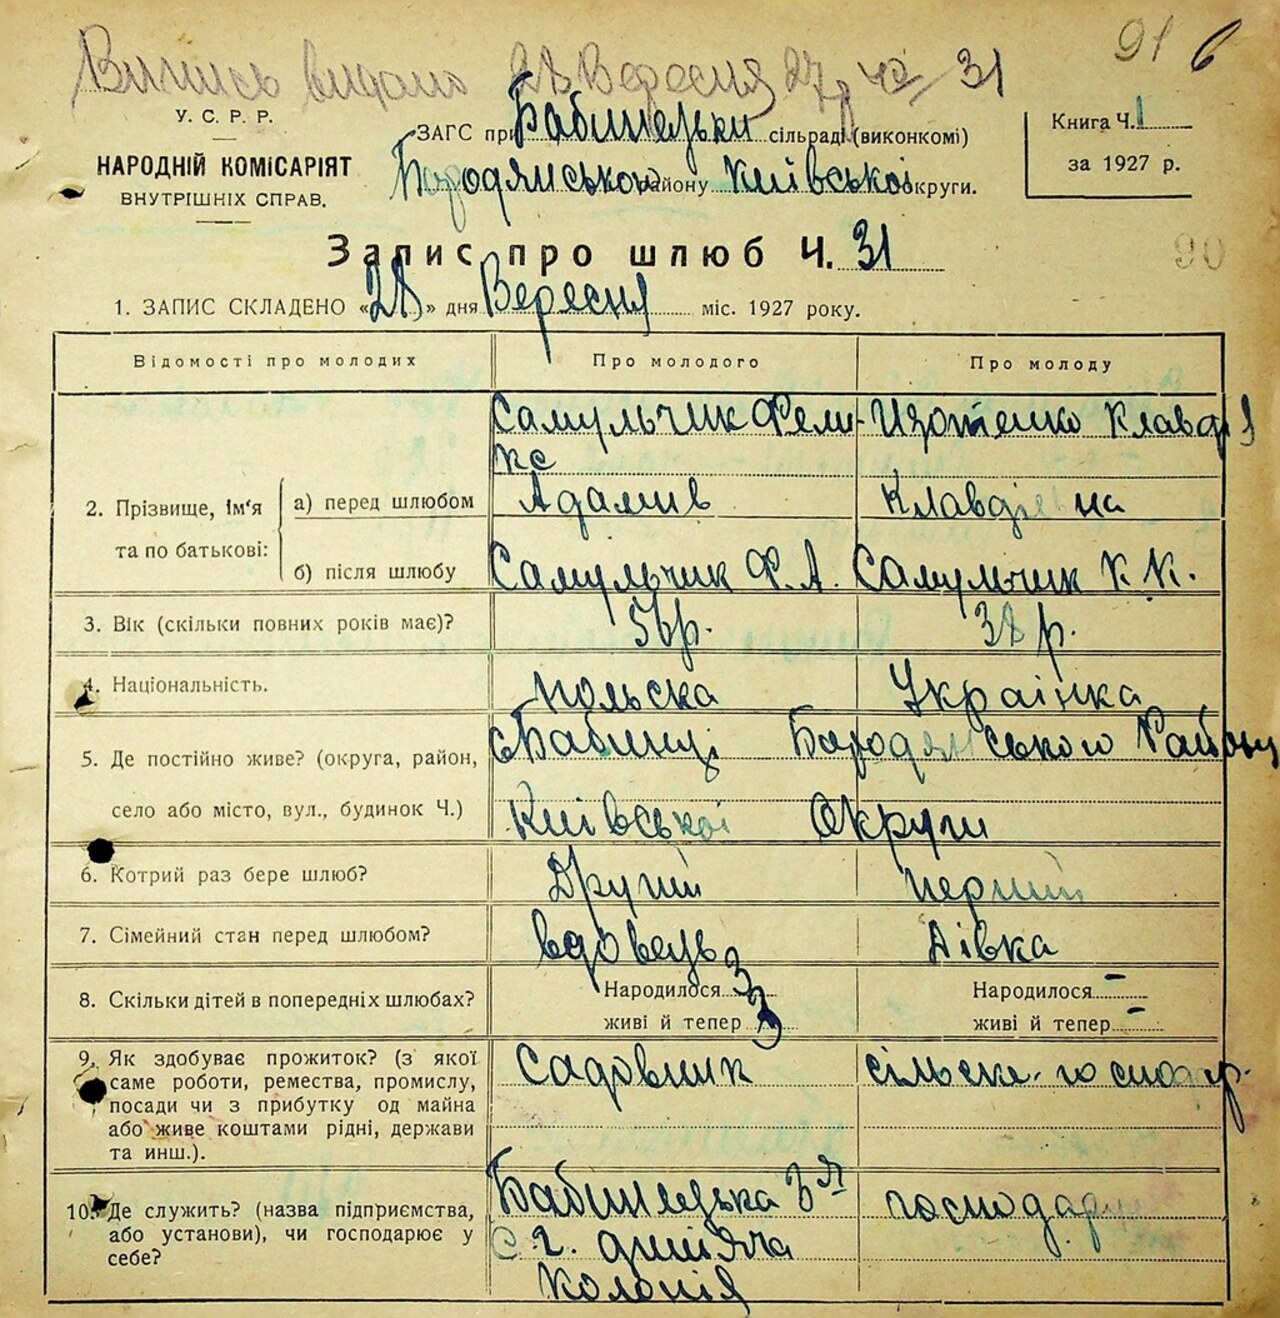 91 6
Випись видано 28 Вересня 27 р 31
У. С. Р. Р.
НАРОДНІЙ КОМІСАРІЯТ
ВНУТРІШНІХ СПРАВ.
ЗАГС при Бабинецьки сільраді (виконкомі)
Бородянського району Київської округи.
Книга Ч. 1
за 1927 р.
Запис про шлюб Ч. 31
90
1. ЗАПИС СКЛАДЕНО «28» дня Вересня міс. 1927 року.
Відомості про молодих Про молодого Про молоду
2. Прізвище, ім'я та по батькові:
а) перед шлюбом
Самульчик Фели-
кс
Адамив
Изотенко Клавдія
Клавдіевна
б) після шлюбу Самульчик Ф. А. Самульчик К. К.
3. Вік (скільки повних років має)? 56 р. 38 р.
4. Національність. польска Украінка
5. Де постійно живе? (округа, район, с Бабинці Бородянського Району
село або місто, вул., будинок Ч.) Київської Округи
6. Котрий раз бере шлюб? Другий перший
7. Сімейний стан перед шлюбом? вдовець Дівка
8. Скільки дітей в попередніх шлюбах? Народилося 3 Народилося -
живі й тепер 3 живі й тепер -
9. Як здобуває прожиток? (з якої
саме роботи, ремества, промислу,
посади чи з прибутку од майна
або живе коштами рідні, держави
та инш.).
Садовник сільске-господар.
10. Де служить? (назва підприємства,
або установи), чи господарює у
себе?
Бабинецька 3я
с. г. дитяча
колонія
господарює